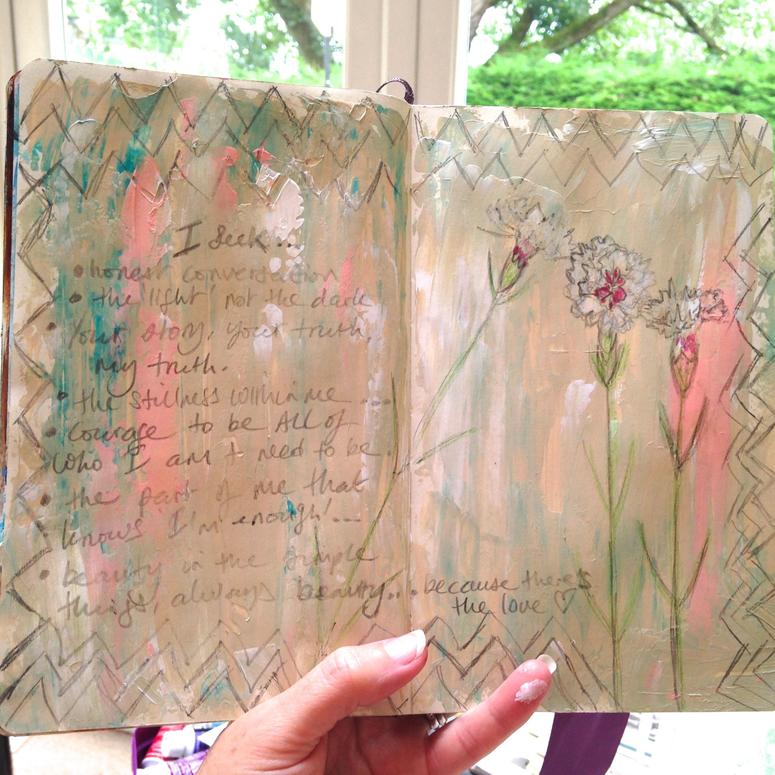 I seek...
• honest conversation
• the 'light' not the dark
• Your story, your truth,
my truth.
• the stillness within me ...
• Courage to be All of
who I am & need to be.
• the part of me that
knows 'I'm enough'...
• beauty in the simple
things, always beauty... because there's
the love ♡